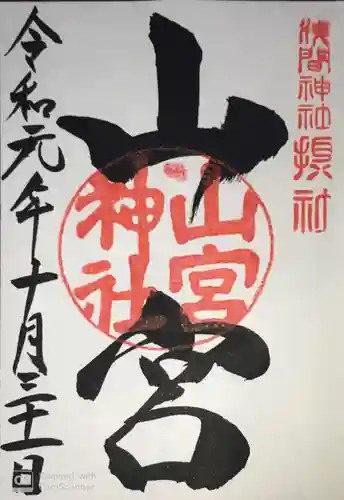 浅間神社摂社
山宮
山宮神社
令和元年十月三十一日
Scanned with
CamScanner